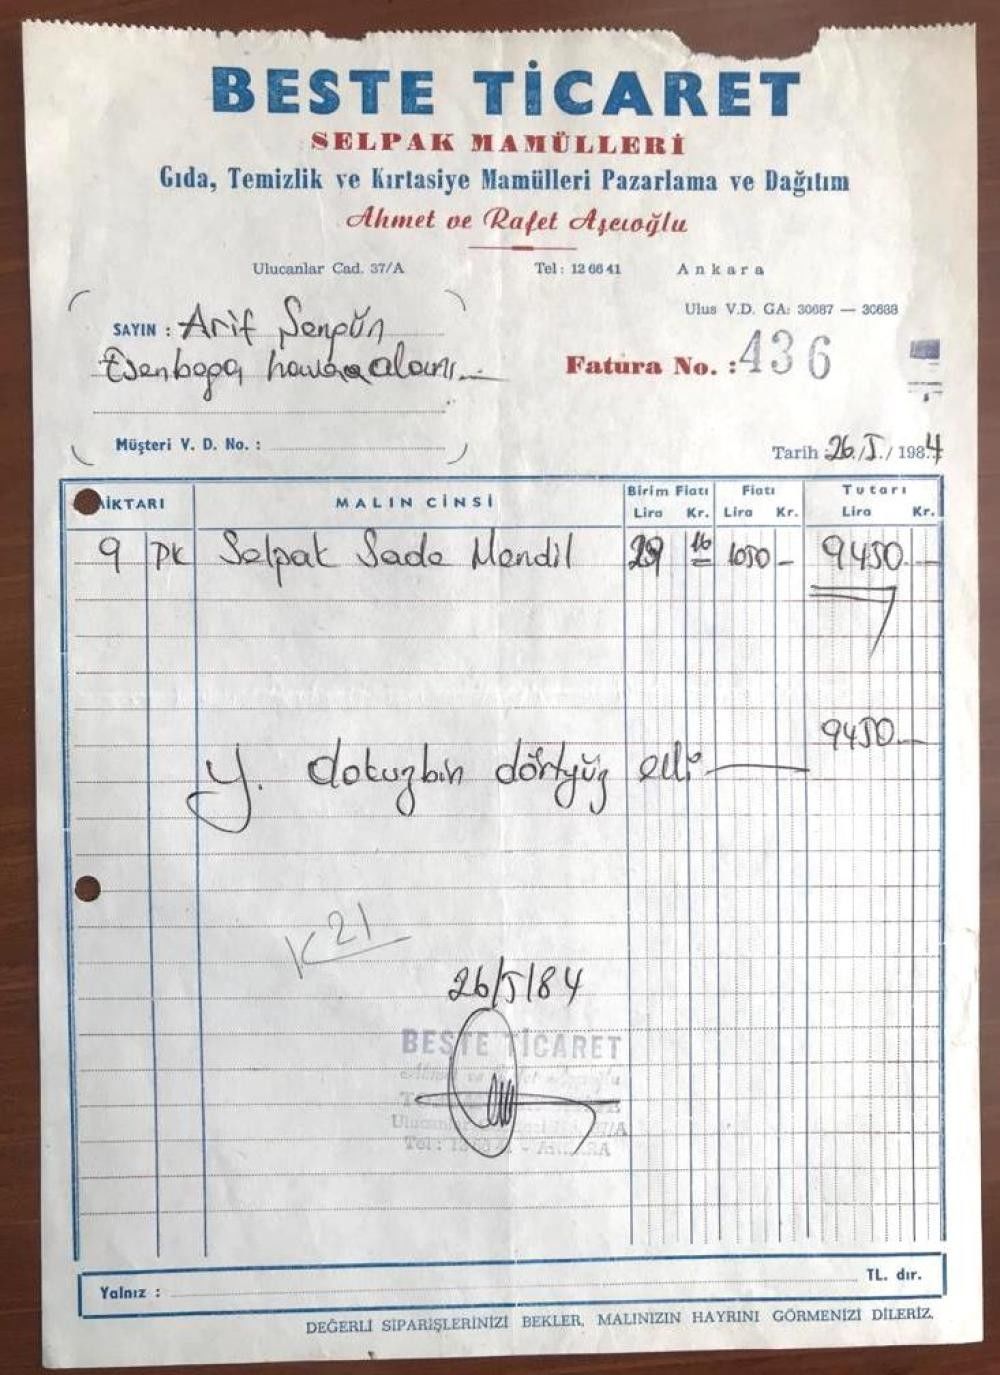 BESTE TİCARET
SELPAK MAMÜLLERİ
Gıda, Temizlik ve Kırtasiye Mamülleri Pazarlama ve Dağıtım
Ahmet ve Rafet Aşcıoğlu
Ulucanlar Cad. 37/A Tel: 12 66 41 Ankara
Ulus V.D. GA: 30687 — 30688
SAYIN : Arif Şengün
Esenboğa havaalanı
Fatura No. : 436
Müşteri V. D. No. :
Tarih 26/5/1984
MİKTARI MALIN CİNSİ Birim Fiatı Fiatı Tutarı
Lira Kr. Lira Kr. Lira Kr.
9 PK Selpak Sade Mendil 29 16 1050 - 9450 —
9450 —
Y. dokuzbin dörtyüz elli
K21
26/5/84
BESTE TİCARET
Tel :
Yalnız : TL. dır.
DEĞERLİ SİPARİŞLERİNİZİ BEKLER, MALINIZIN HAYRINI GÖRMENİZİ DİLERİZ.